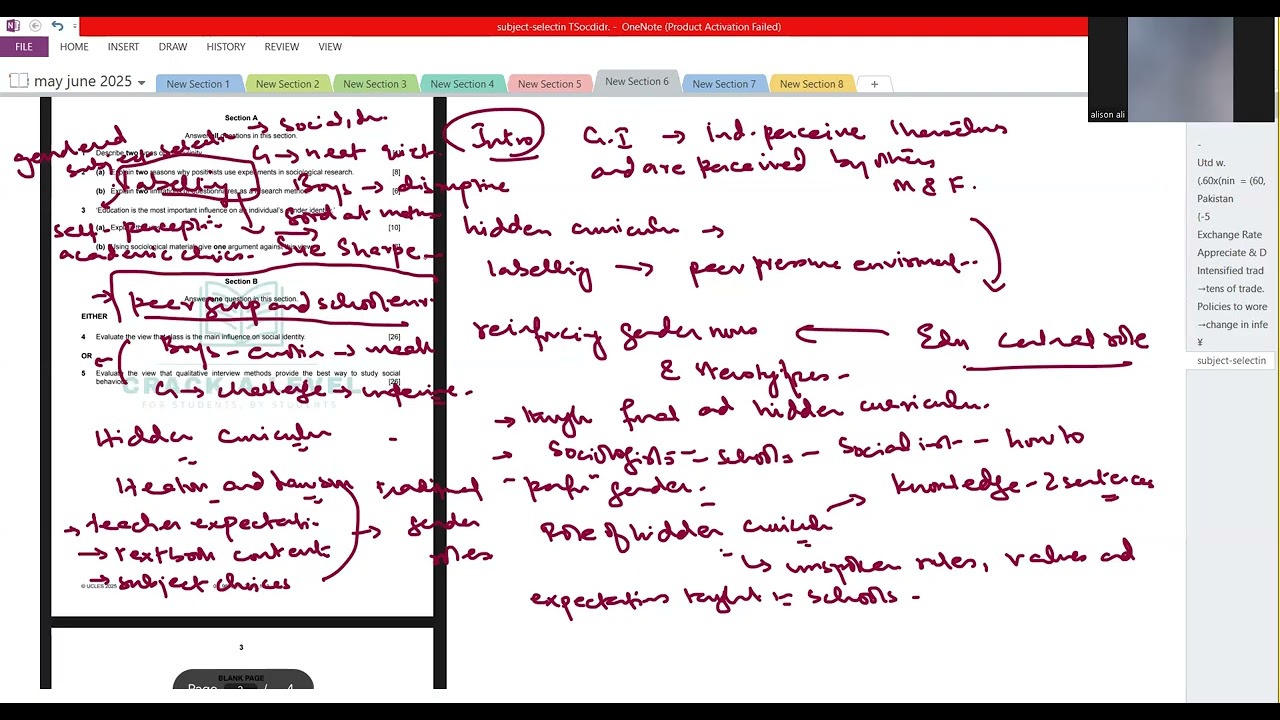 subject-selectin TSocdidr. - OneNote (Product Activation Failed)
FILE HOME INSERT DRAW HISTORY REVIEW VIEW
may june 2025
New Section 1 New Section 2 New Section 3 New Section 4 New Section 5 New Section 6 New Section 7 New Section 8 +
alison ali
Section A
Answer all questions in this section.
Explain two reasons why positivists use experiments in sociological research. [8]
(b) Explain two
as a research method
3 'Education is the most important influence on an individual's gender identity.'
(a) [10]
(b) Using sociological material, give one argument against this view.
Section B
Answer one question in this section.
EITHER
4 Evaluate the view that class is the main influence on social identity. [26]
OR
5 Evaluate the view that qualitative interview methods provide the best way to study social
behaviour. [26]
CRACK A LEVEL
FOR STUDENTS, BY STUDENTS
© UCLES 2025
3
BLANK PAGE
Page 2 / 4
gendered
→ social,
G → neat quiet
labelling
Boys → disruptive
self percepti-
Good at maths
academic choices.
Sue Sharpe
→ peer group and school env.
Boys -
G → challenge →
Hidden curriculum -
Heaton and Lawson
traditional
→ teacher expectati-
→ gender
→ textbook contents
roles
→ subject choices
Intro
G.I → Ind. perceive themselves
and are perceived by others
M & F.
hidden curriculum →
labelling → peer pressure environment..
reinforcing gender norms ← Edu central role
& stereotypes -
→ and hidden curriculum.
→ Sociologists - schools - socialist - how to
"perfor" gender. -
knowledge - 2 sentences
Role of hidden curriculum
↳ unspoken rules, values and
expectations taught in schools -
-
Utd w.
(,60x(nin = (60,
Pakistan
(-5
Exchange Rate
Appreciate & D
Intensified trad
→tens of trade.
Policies to wore
→change in infe
¥
subject-selectin